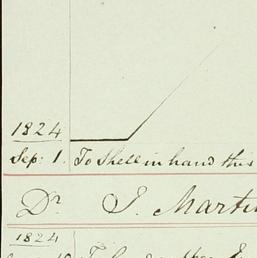 1824
Sep: 1. To Shell in hand this
Dr. J. Martin
1824